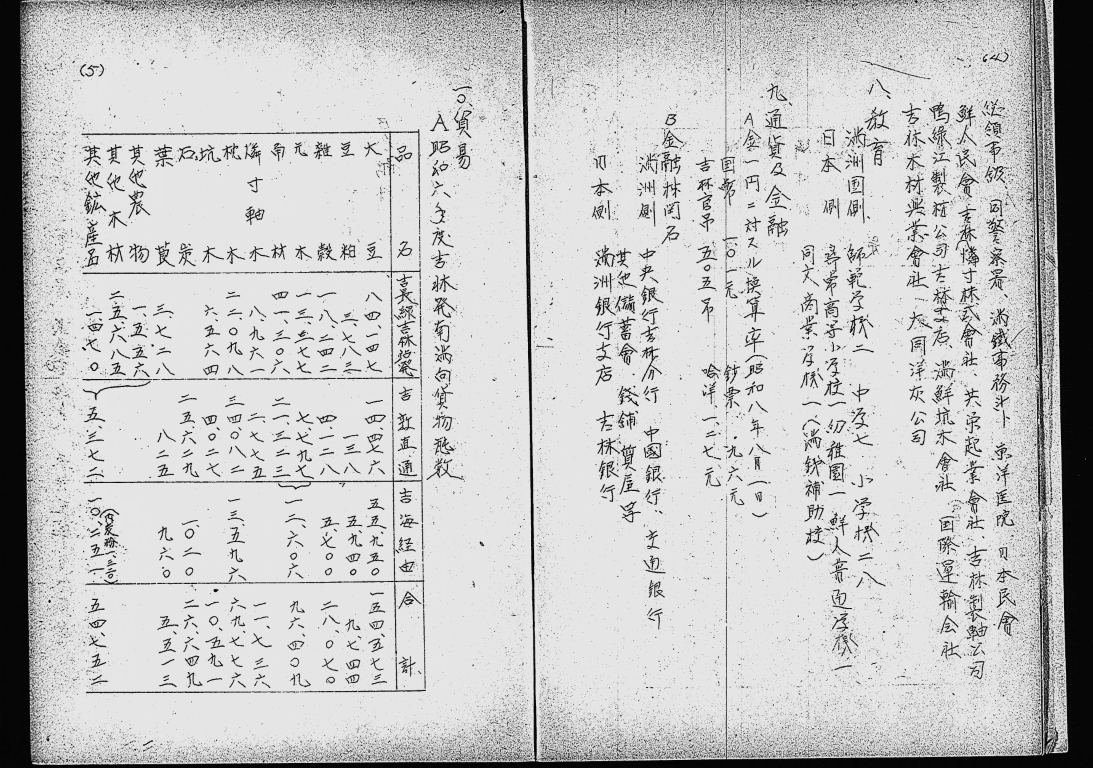 (4)
總領事館、同警察署、滿鐵事務所、東洋医院 日本民會
鮮人民會、吉林燐寸株式會社、共栄起業會社、吉林製軸公司
鴨綠江製材公司吉林支店、滿鮮坑木會社、国際運輸会社
吉林木材興業會社、大同洋灰公司
八、敎育
滿洲国側 師範学校二 中学七 小学校二八
日本側 尋常高等小学校一 幼稚園一 鮮人普通学校一
同文商業学校一(滿鉄補助校)
九、通貨及金融
A 金一円ニ対スル換算率(昭和八年八月一日)
国幣 一〇一元 鈔票 .九六元
吉林官帖 五〇五吊 哈洋 一、二七元
B 金融機関
滿洲側 中央銀行吉林分行 中國銀行、交通銀行
其他儲蓄會 錢舖 質屋等
日本側 滿洲銀行支店 吉林銀行
(5)
一〇、貨易
A 昭和六年度吉林発南滿向貨物噸数
品名 吉長線吉林站発 吉敦直通 吉海経由 合計
大豆 八四、一四七 一四、四七六 五五、九五〇 一五四、五七三
豆粕 三、七八三 一三八 五、九四〇 九、七四四
雜穀 一八、二四二 四、一二八 五、七〇〇 二八、〇七〇
元木 一三、三七七 七、七九七
南材 四一、三〇六 二一、三二三 一二、六〇六 九六、四〇九
燐寸軸木 八、九六一 二、七七五 一一、七三六
枕木 二二、〇九八 三四、〇八二 一三、五九六 六九、七七六
坑木 六、五六四 四、〇二七 一〇、五九一
石炭 二五、六二九 一、〇二〇 二六、六四九
葉莨 三、七二八 八二五 九六〇 五、五一三
其他農物 一、五五六
其他木材 二五、六八五
其他鉱産品 一、四七〇 一五、三七二 一〇、二五一 五四、七五二